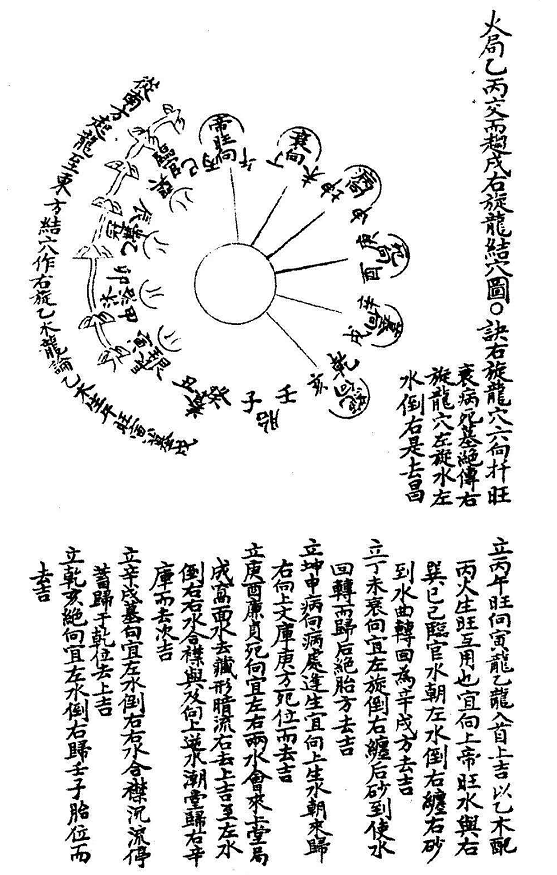 火局乙丙交而趨戌右旋龍結穴圖○訣右旋龍穴六向扦旺
衰病死墓絕傳右
旋龍穴左旋水左
水倒右是去昌
帝旺向丙午
衰向丁未
病向坤申
死向庚酉
墓向辛戌
絕向乾亥
胎
壬子
癸丑
甲卯
乙辰
從南方起龍至東方結穴作右旋乙水龍論乙木生午旺寅墓戌
立丙午旺向寅龍乙龍入首上吉以乙木配
丙火生旺互用也宜向上帝旺水與右
巽巳乙臨官水朝左水倒右纏右砂
到水曲轉回為辛戌方去吉
立丁未衰向宜左旋倒右纏后砂到使水
回轉而歸后絕胎方去吉
立坤申病向病處逢生宜向上生水朝來歸
右向上文庫庚方死位而去吉
立庚酉廉貞死向宜左右兩水會來上堂局
成蒿面水去藏形暗流右去上吉至左水
倒右右水合襟與及向上逆水潮堂歸右辛
庫而去次吉
立辛戌墓向宜左水倒右右水合襟沉流停
蓄歸于乾位去上吉
立乾亥絕向宜左水倒右歸壬子胎位而
去吉